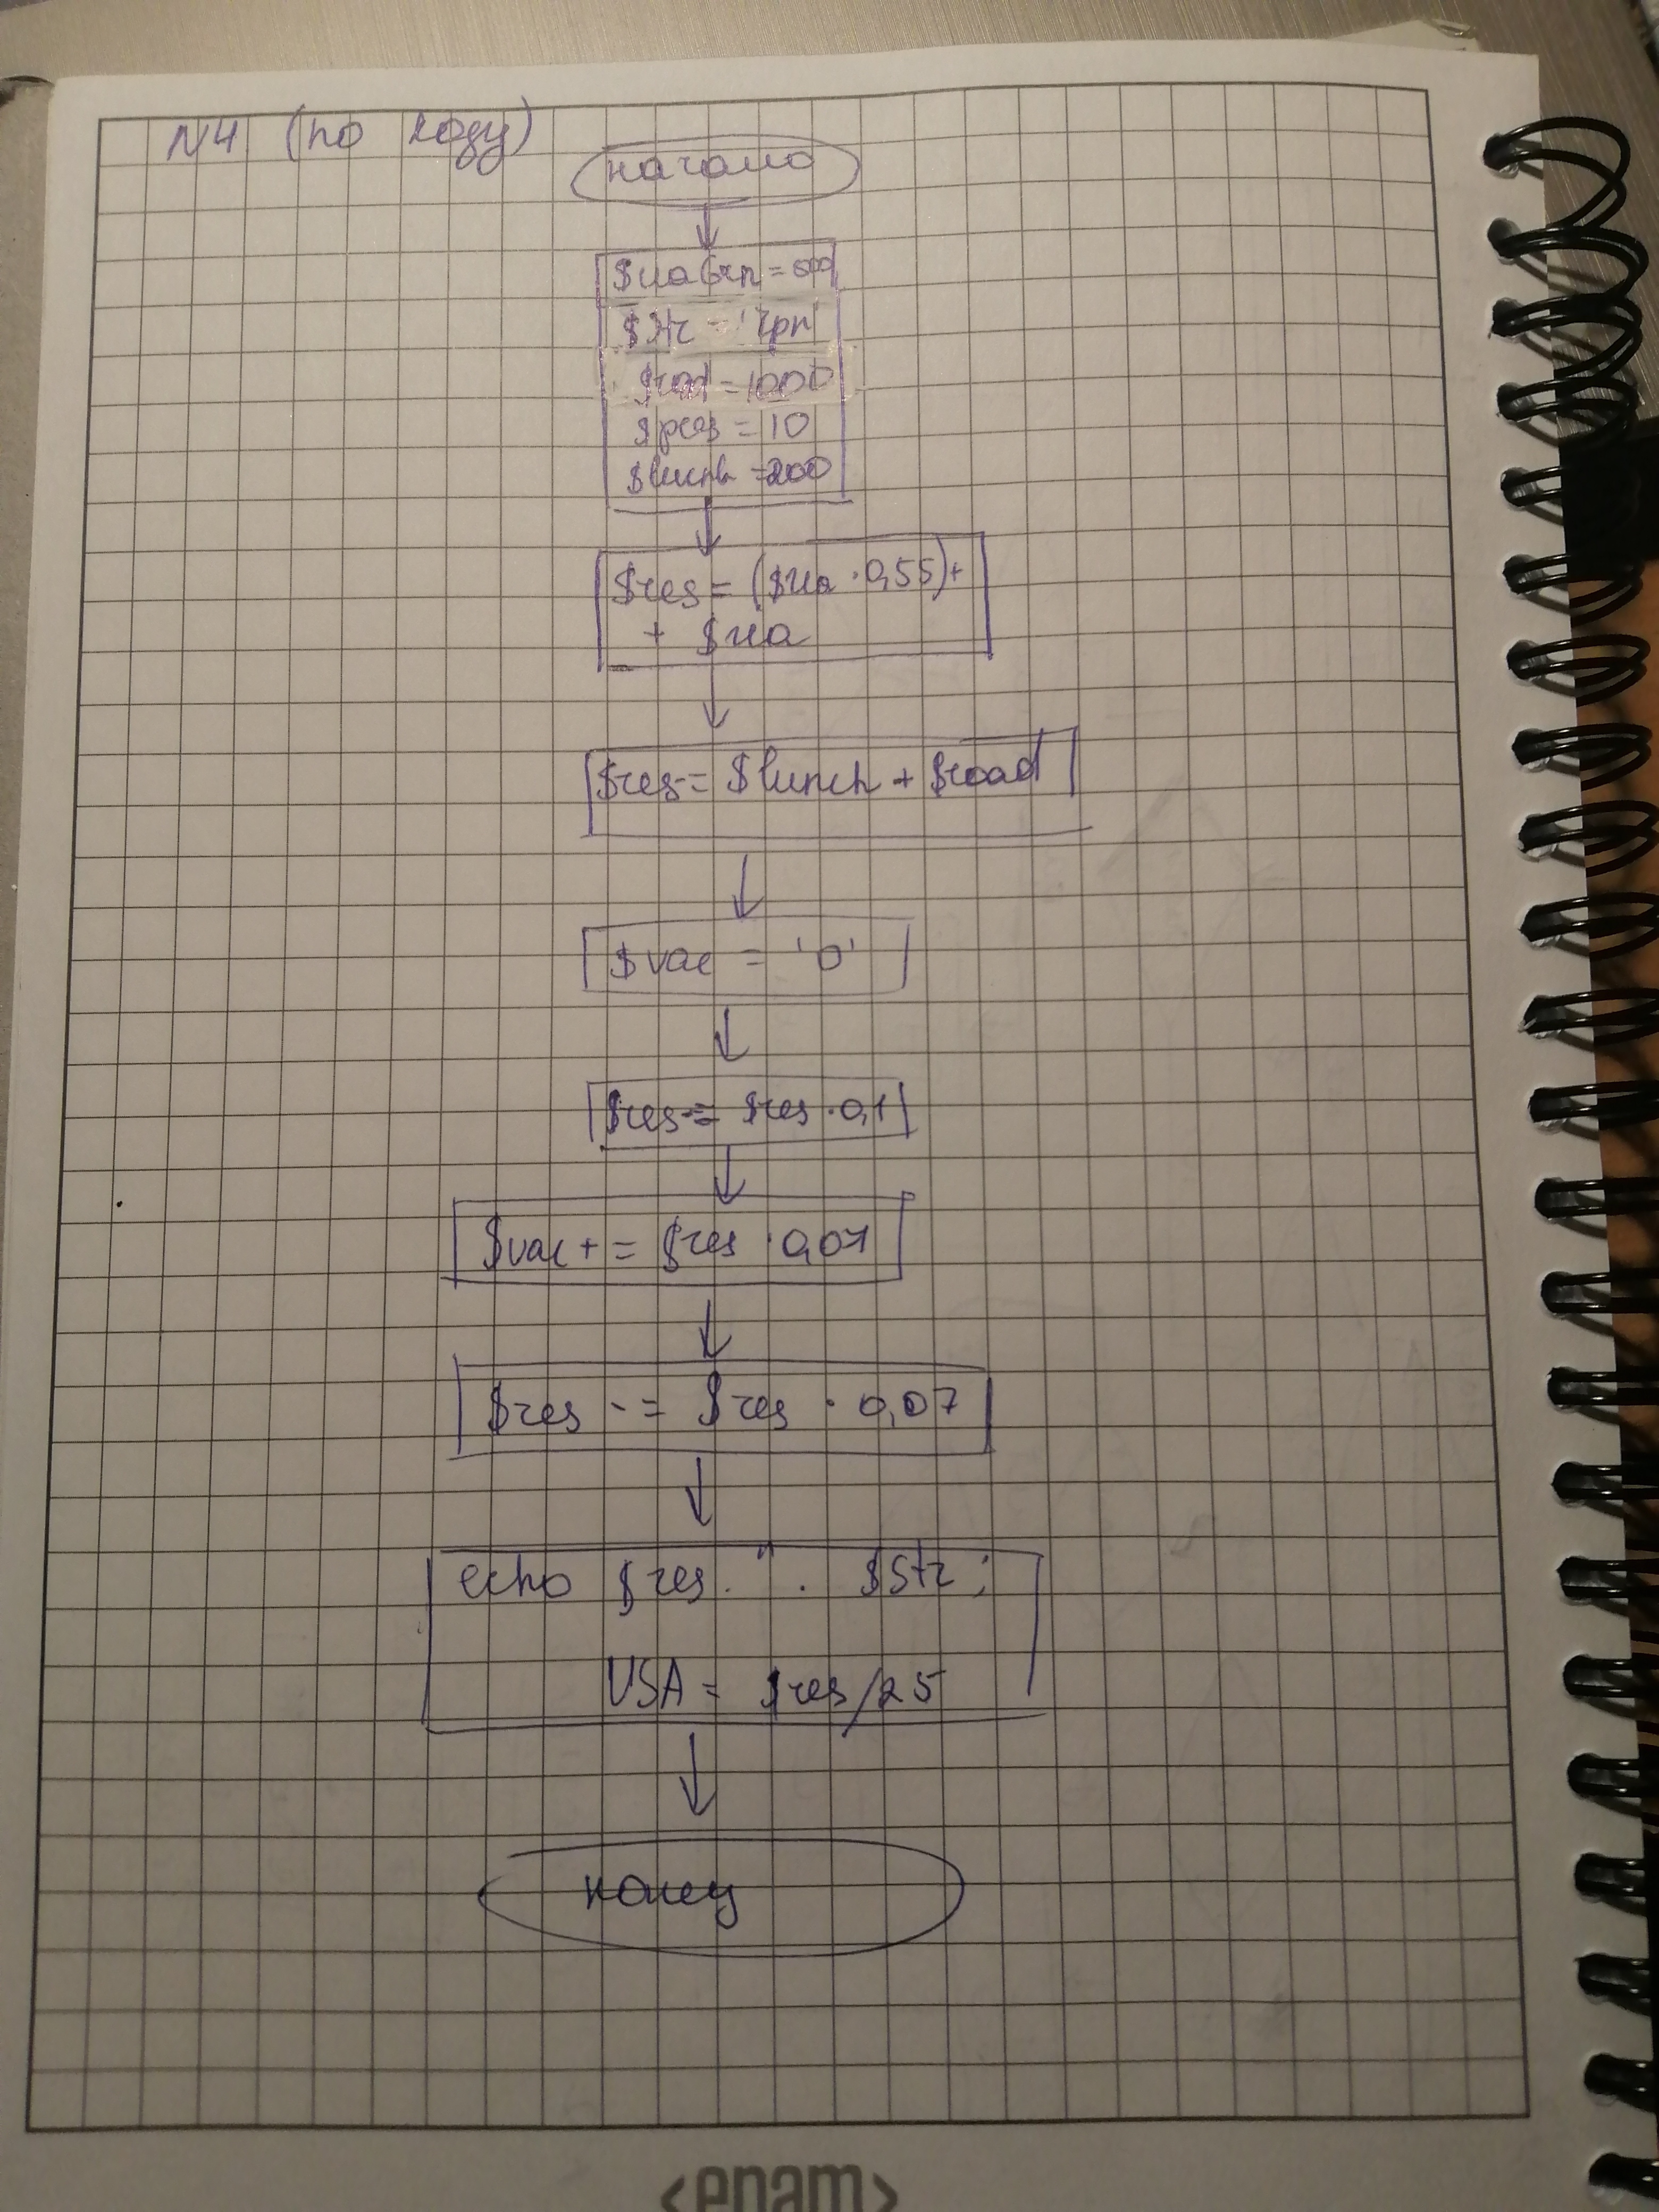 N4 (по ходу)
начало
$ua грn =
$str = 'грn'
$road = 1000
$pres = 10
$lunch = 200
$res = ($ua · 0,55) +
+ $ua
$res -= $lunch + $road
$vac = '0'
$res -= $res · 0,1
$vac + = $res · 0,07
$res - = $res · 0,07
echo $res . " . $str ;
USA = $res/25
конец
<enam>